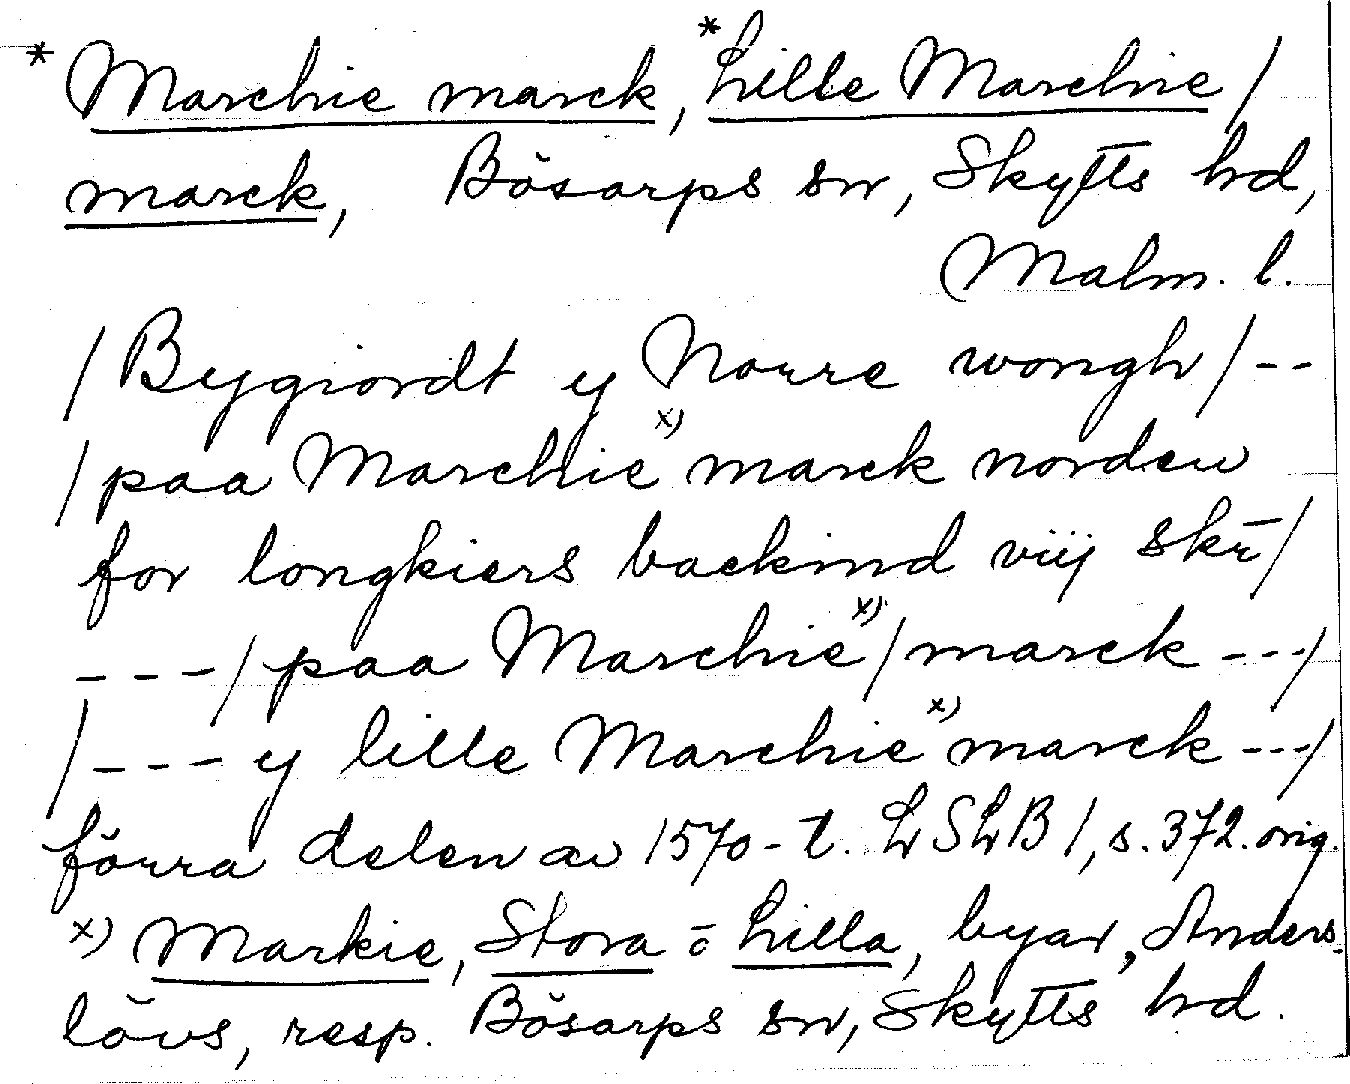 * Marchie marck, *Lille Marchie/
marck, Bösarps sn, Skytts hd,
Malm. l.
/Bygiordt y Norre wongh/--
/paa Marchie x) marck norden
for longkiers backind viij skr̄/
---/paa Marchie x)/marck---/
/---y lille Marchie x) marck---/
förra delen av 1570-t. LSLB 1, s. 372. orig.
x) Markie, Stora o Lilla, byar, Anders-
lövs, resp. Bösarps sn, Skytts hd.